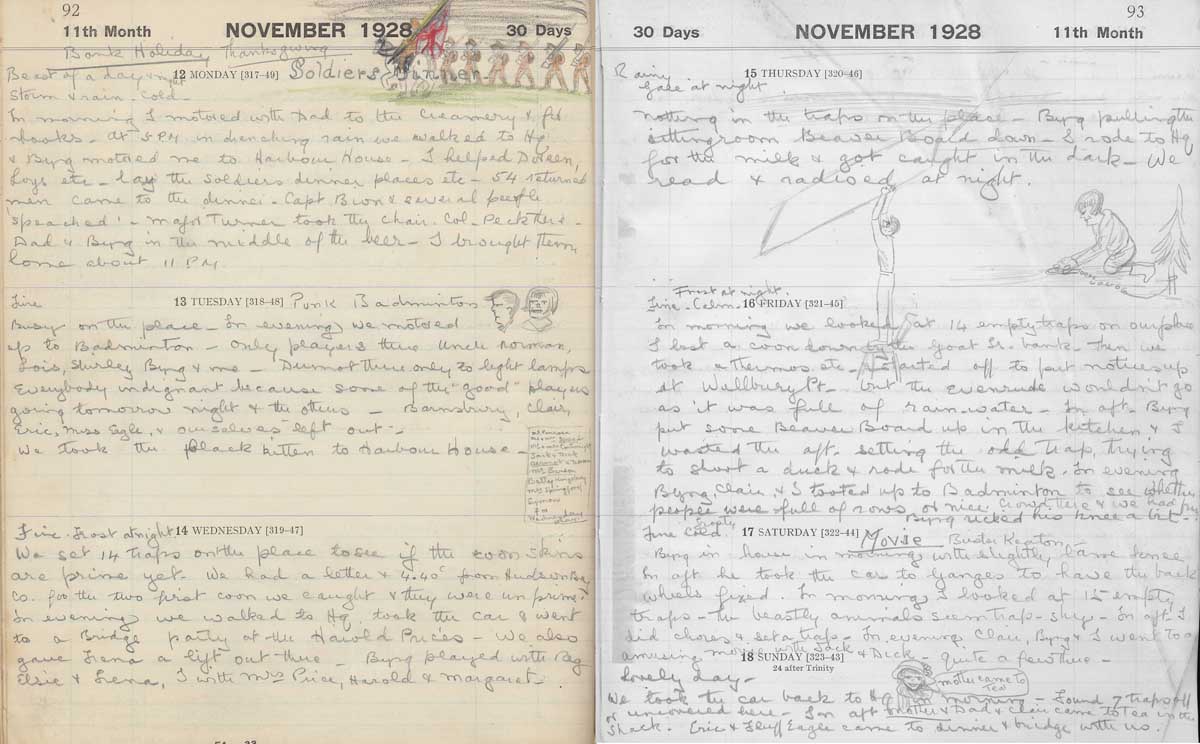 92
11th Month NOVEMBER 1928 30 Days
Bank Holiday Thanksgiving
Beast of a day & night 12 MONDAY [317-49] Soldiers Dinner
Storm & rain. Cold
In morning I motored with Dad to the Creamery & for
hooks. At 5 PM in drenching rain we walked to Hq
& Byng motored me to Harbour House - I helped Doreen,
Loys etc - lay the soldiers dinner places etc - 54 returned
men came to the dinner. Capt Bion & several people
'speached' - Major Turner took the chair. Col. Peck there.
Dad & Byng in the middle of the beer - I brought them
home about 11 PM.
Fine 13 TUESDAY [318-48] Punk Badminton
Busy on the place - In evening we motored
up to Badminton - Only players there Uncle Norman,
Lois, Shirley Byng & me - Desmond there only 20 light lamps
Everybody indignant because some of the "good" players
going tomorrow night & the others - Barnsbury, Clair,
Eric, Miss Eagle, & ourselves left out -
We took the black kitten to Harbour House -
Jack & Dick
for
Wednesday
Fine. Frost at night 14 WEDNESDAY [319-47]
We set 14 traps on the place to see if the coon skins
are prime yet. We had a letter & 4.40c from Hudson Bay
Co. for the two first coon we caught & they were unprime.
In evening we walked to Hq, took the car & went
to a Bridge party at the Harold Prices - We also
gave Irena a lift out there - Byng played with Peg
Elsie & Irena, I with Mrs Price, Harold & Margaret -
93
30 Days NOVEMBER 1928 11th Month
Rainy 15 THURSDAY [320-46]
Gale at night
Nothing in the traps on the place - Byng pulling the
sittingroom Beaver Board down - I rode to Hq
for the milk & got caught in the dark - We
read & radioed at night.
Frost at night.
Fine. Calm. 16 FRIDAY [321-45]
In morning we looked at 14 empty traps on our place
I lost a coon down the goat Is. bank. Then we
took a thermos etc - started off to put notices up
at Wallbury Pt. but the evenrude wouldn't go
as it was full of rain-water - In aft. Byng
put some Beaver Board up in the kitchen & I
wasted the aft. setting the odd trap, trying
to shoot a duck & rode for the milk. In evening
Byng, Clair, & I tooted up to Badminton to see whether
people were full of rows or nice crowd there & we had
Byng ricked his knee a bit -
Fine Cold. 17 SATURDAY [322-44] Movie Buster Keaton -
Byng in house in morning with slightly lame knee
In aft he took the car to Ganges to have the back
wheels fixed. In morning I looked at 15 empty
traps - The beastly animals seem trap-shy - In aft I
did chores & set a trap - In evening Clair, Byng & I went to a
amusing movie with Jack & Dick - Quite a few there -
18 SUNDAY [323-43]
24 after Trinity
Lovely day -
mother came to
tea
We took the car back to Hq in morning - Found 7 traps off
or uncovered here - In aft Mother & Dad & Clair came to tea in the
shack. Eric & Fluff Eagle came to dinner & bridge with us.